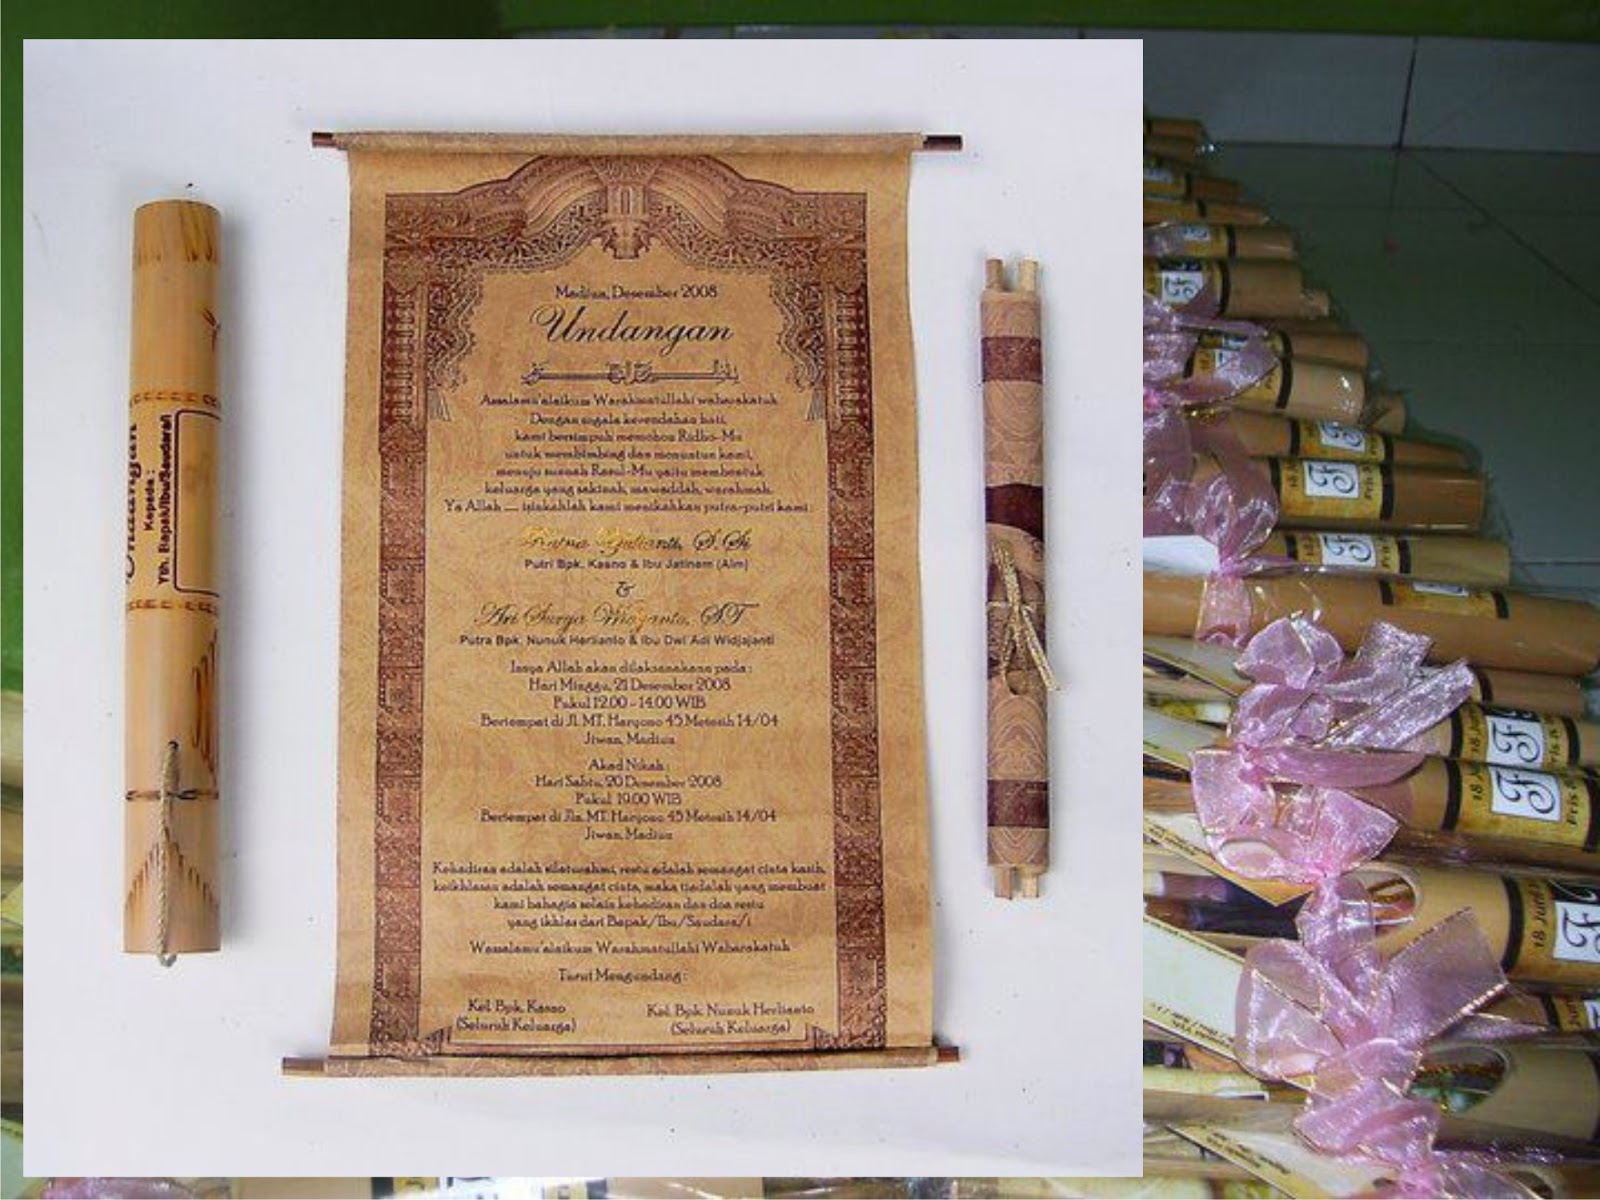 Undangan
Kepada :
Yth. Bapak/Ibu/Saudarah
Madiun, Desember 2008
Undangan
Assalamu'alaikum Warahmatullahi wabarakatuh
Dengan segala kerendahan hati,
kami bersimpuh memohon Ridho-Mu
untuk membimbing dan menuntun kami,
menuju sunnah Rasul-Mu yaitu membentuk
keluarga yang sakinah, mawaddah, warahmah.
Ya Allah ..... ijinkahlah kami menikahkan putra-putri kami :
Ratna Yulianti, S.Si
Putri Bpk. Kasno & Ibu Jatinem (Alm)
&
Ari Surya Wijayanto, ST
Putra Bpk. Nunuk Herlianto & Ibu Dwi Adi Widjajanti
Insya Allah akan dilaksanakan pada :
Hari Minggu, 21 Desember 2008
Pukul 12.00 - 14.00 WIB
Bertempat di Jl. MT. Haryono 45 Metesih 14/04
Jiwan, Madiun
Akad Nikah :
Hari Sabtu, 20 Desember 2008
Pukul 19.00 WIB
Bertempat di Jln. MT. Haryono 45 Metesih 14/04
Jiwan, Madiun
Kehadiran adalah silaturahmi, restu adalah semangat cinta kasih,
keikhlasan adalah semangat cinta, maka tiadalah yang membuat
kami bahagia selain kehadiran dan doa restu
yang ikhlas dari Bapak/Ibu/Saudara/i
Wassalamu'alaikum Warahmatullahi Wabarakatuh
Turut Mengundang :
Kel. Bpk. Kasno
(Seluruh Keluarga)
Kel. Bpk. Nunuk Herlianto
(Seluruh Keluarga)
F
18 J
F
Fris &
18 Juni
F